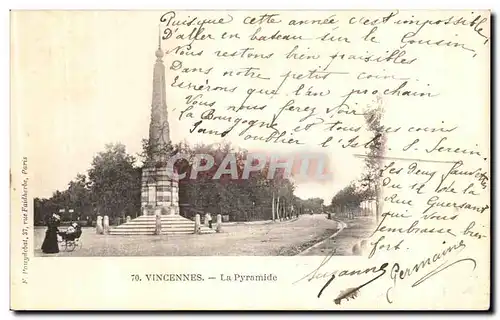 Puisque cette année c'est impossible
D'aller en bateau sur le cousin,
Nous restons bien paisibles
Dans notre petit coin,
Espérons que l'an prochain
Vous nous ferez voir
la Bourgogne et tous ces coins
Sans oublier l'Isle S. Serein
Les Deux
de la
Rue Guersant
qui vous
embrasse bien
fort.
Suzanne Germain
CPA
F. Pouydebat, 37, rue Faidherbe, Paris
70. VINCENNES. — La Pyramide